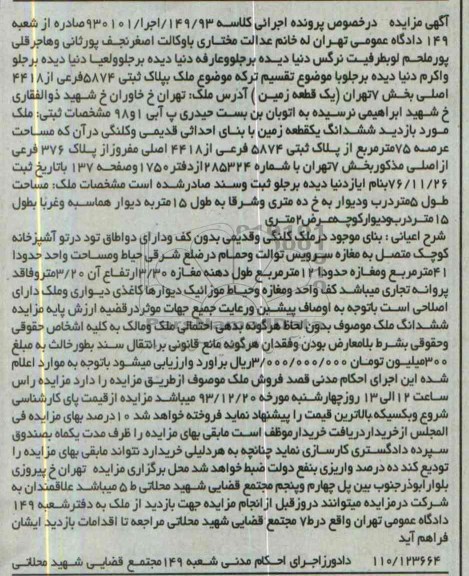 آگهی مزایده درخصوص پرونده اجرائی کلاسه ۱۴۹/۹۳/اجرا/۹۳۰۱۰۱صادره از شعبه
۱۴۹ دادگاه عمومی تهران له خانم عدالت مختاری باوکالت اصغرنجف پورثانی وهاجرقلی
پورملحم لوبظرفیت نرگس دنیا دیده برجلووعارفه دنیا دیده برجلوولعیا دنیا دیده برجلو
واکرم دنیا دیده برجلوبا موضوع تقسیم ترکه موضوع ملک بپلاک ثبتی ۵۸۷۴فرعی از۴۴۱۸
اصلی بخش ۷تهران (یک قطعه زمین ) آدرس ملک: تهران خ خاوران خ شهید ذوالفقاری
خ شهید ابراهیمی نرسیده به اتوبان بن بست حیدری پ آبی ۱و۹۸ مشخصات ثبتی: ملک
مورد بازدید ششدانگ یکقطعه زمین با بنای احداثی قدیمی وکلنگی درآن که مساحت
عرصه ۷۵مترمربع از پلاک ثبتی ۵۸۷۴ فرعی از۴۴۱۸ اصلی مفروزاز پلاک ۳۷۶ فرعی
ازاصلی مذکوربخش ۷تهران با شماره ۲۸۵۳۲۴ازدفتر۱۷۵۰وصفحه ۱۳۷ باتاریخ ثبت
۷۶/۱۱/۲۶بنام ایازدنیا دیده برجلو ثبت وسند صادرشده است مشخصات ملک: مساحت
طول ۵متردرب ودیوار به خ ده متری وشرقا به طول ۱۵متربه دیوار هماسبه وغربا بطول
۱۵متردرب‌ودیوارکوچه‌عرض۲متری
شرح اعیانی : بنای موجود درملک کلنگی وقدیمی بدون کف ودارای دواطاق تود درتو آشپزخانه
کوچک متصل به مغازه سرویس توالت وحمام درضلع شرقی حیاط ومساحت واحد حدودا
۴۱مترمربع ومغازه حدودا ۱۲مترمربع طول دهنه مغازه ۳/۳۰ارتفاع آن ۳/۲۰متروفاقد
پروانه تجاری میباشد کف واحد ومغازه وحیاط موزائیک دیوارها کاغذی دیواری وملک دارای
اصلاحی است باتوجه به اوصاف پیشین ورعایت جمیع جهات موثردرقضیه ارزش پایه مزایده
ششدانگ ملک موصوف بدون لحاظ هرگونه بدهی احتمالی ملک ومالک به کلیه اشخاص حقوقی
وحقوقی بشرط بلامعارض بودن وفقدان هرگونه مانع قانونی برانتقال سند بطورخالث به مبلغ
۳۰۰میلیون تومان ۳/۰۰۰/۰۰۰/۰۰۰ریال برآورد وارزیابی میشود باتوجه به موارد اعلام
شده این اجرای احکام مدنی قصد فروش ملک موصوف ازطریق مزایده را دارد مزایده راس
ساعت ۱۲الی ۱۳ روزچهارشنبه مورخه ۹۳/۱۲/۲۰ میباشد مزایده ازقیمت پای کارشناسی
شروع وبکسیکه بالاترین قیمت را پیشنهاد نماید فروخته خواهد شد ۱۰درصد بهای مزایده فی
المجلس ازخریداردریافت خریدارموظف است مابقی بهای مزایده را ظرف مدت یکماه بصندوق
سپرده دادگستری کارسازی نماید چنانچه به هردلیلی خریدارد نتواند مابقی بهای مزایده را
تودیع کند ده درصد واریزی بنفع دولت ضبط خواهد شد محل برگزاری مزایده تهران خ پیروزی
بلوارابوذرجنوب بین پل چهارم وپنجم مجتمع قضایی شهید محلاتی ط ۵ میباشد علاقمندان به
شرکت درمزایده میتوانند دروزقبل ازانجام مزایده جهت بازدید از ملک به دفترشعبه ۱۴۹
دادگاه عمومی تهران واقع درط۷ مجتمع قضایی شهید محلاتی مراجعه تا اقدامات بازدید ایشان
فراهم آید
۱۱۰/۱۲۳۶۶۴ دادورزاجرای احکام مدنی شعبه ۱۴۹مجتمع قضایی شهید محلاتی